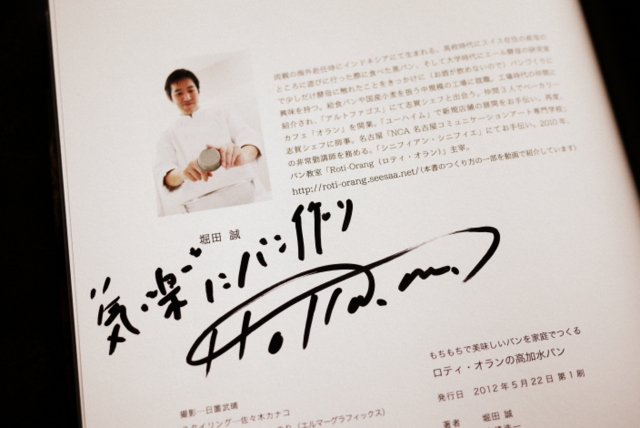 両親の海外赴任時にインドネシアにて生まれる。高校時代にスイス在住の叔母の
ところに遊びに行った際に食べた黒パン、そして大学時代にエール酵母の研究室
で少しだけ酵母に触れたことをきっかけに（お酒が飲めないので）パンづくりに
興味を持つ。給食パンや国産小麦を扱う中規模の工場に就職。工場時代の仲間に
紹介され、「アルトファゴス」にて志賀シェフと出会う。仲間3人でベーカリー
カフェ「オラン」を開業。「ユーハイム」で新規店舗の展開をお手伝い。再度、
志賀シェフに師事。名古屋「NCA 名古屋コミュニケーションアート専門学校」
の非常勤講師を務める。「シニフィアン・シニフィエ」にてお手伝い。2010年、
パン教室「Roti-Orang（ロティ・オラン）」主宰。
http://roti-orang.seesaa.net/（本書のつくり方の一部を動画で紹介しています）
堀田 誠
"気楽"にパン作り
もちもちで美味しいパンを家庭でつくる
ロティ・オランの高加水パン
発行日 2012年5月22日 第1刷
著者 堀田 誠
撮影…日置武晴
スタイリング…佐々木カナコ
（エルマーグラフィックス）